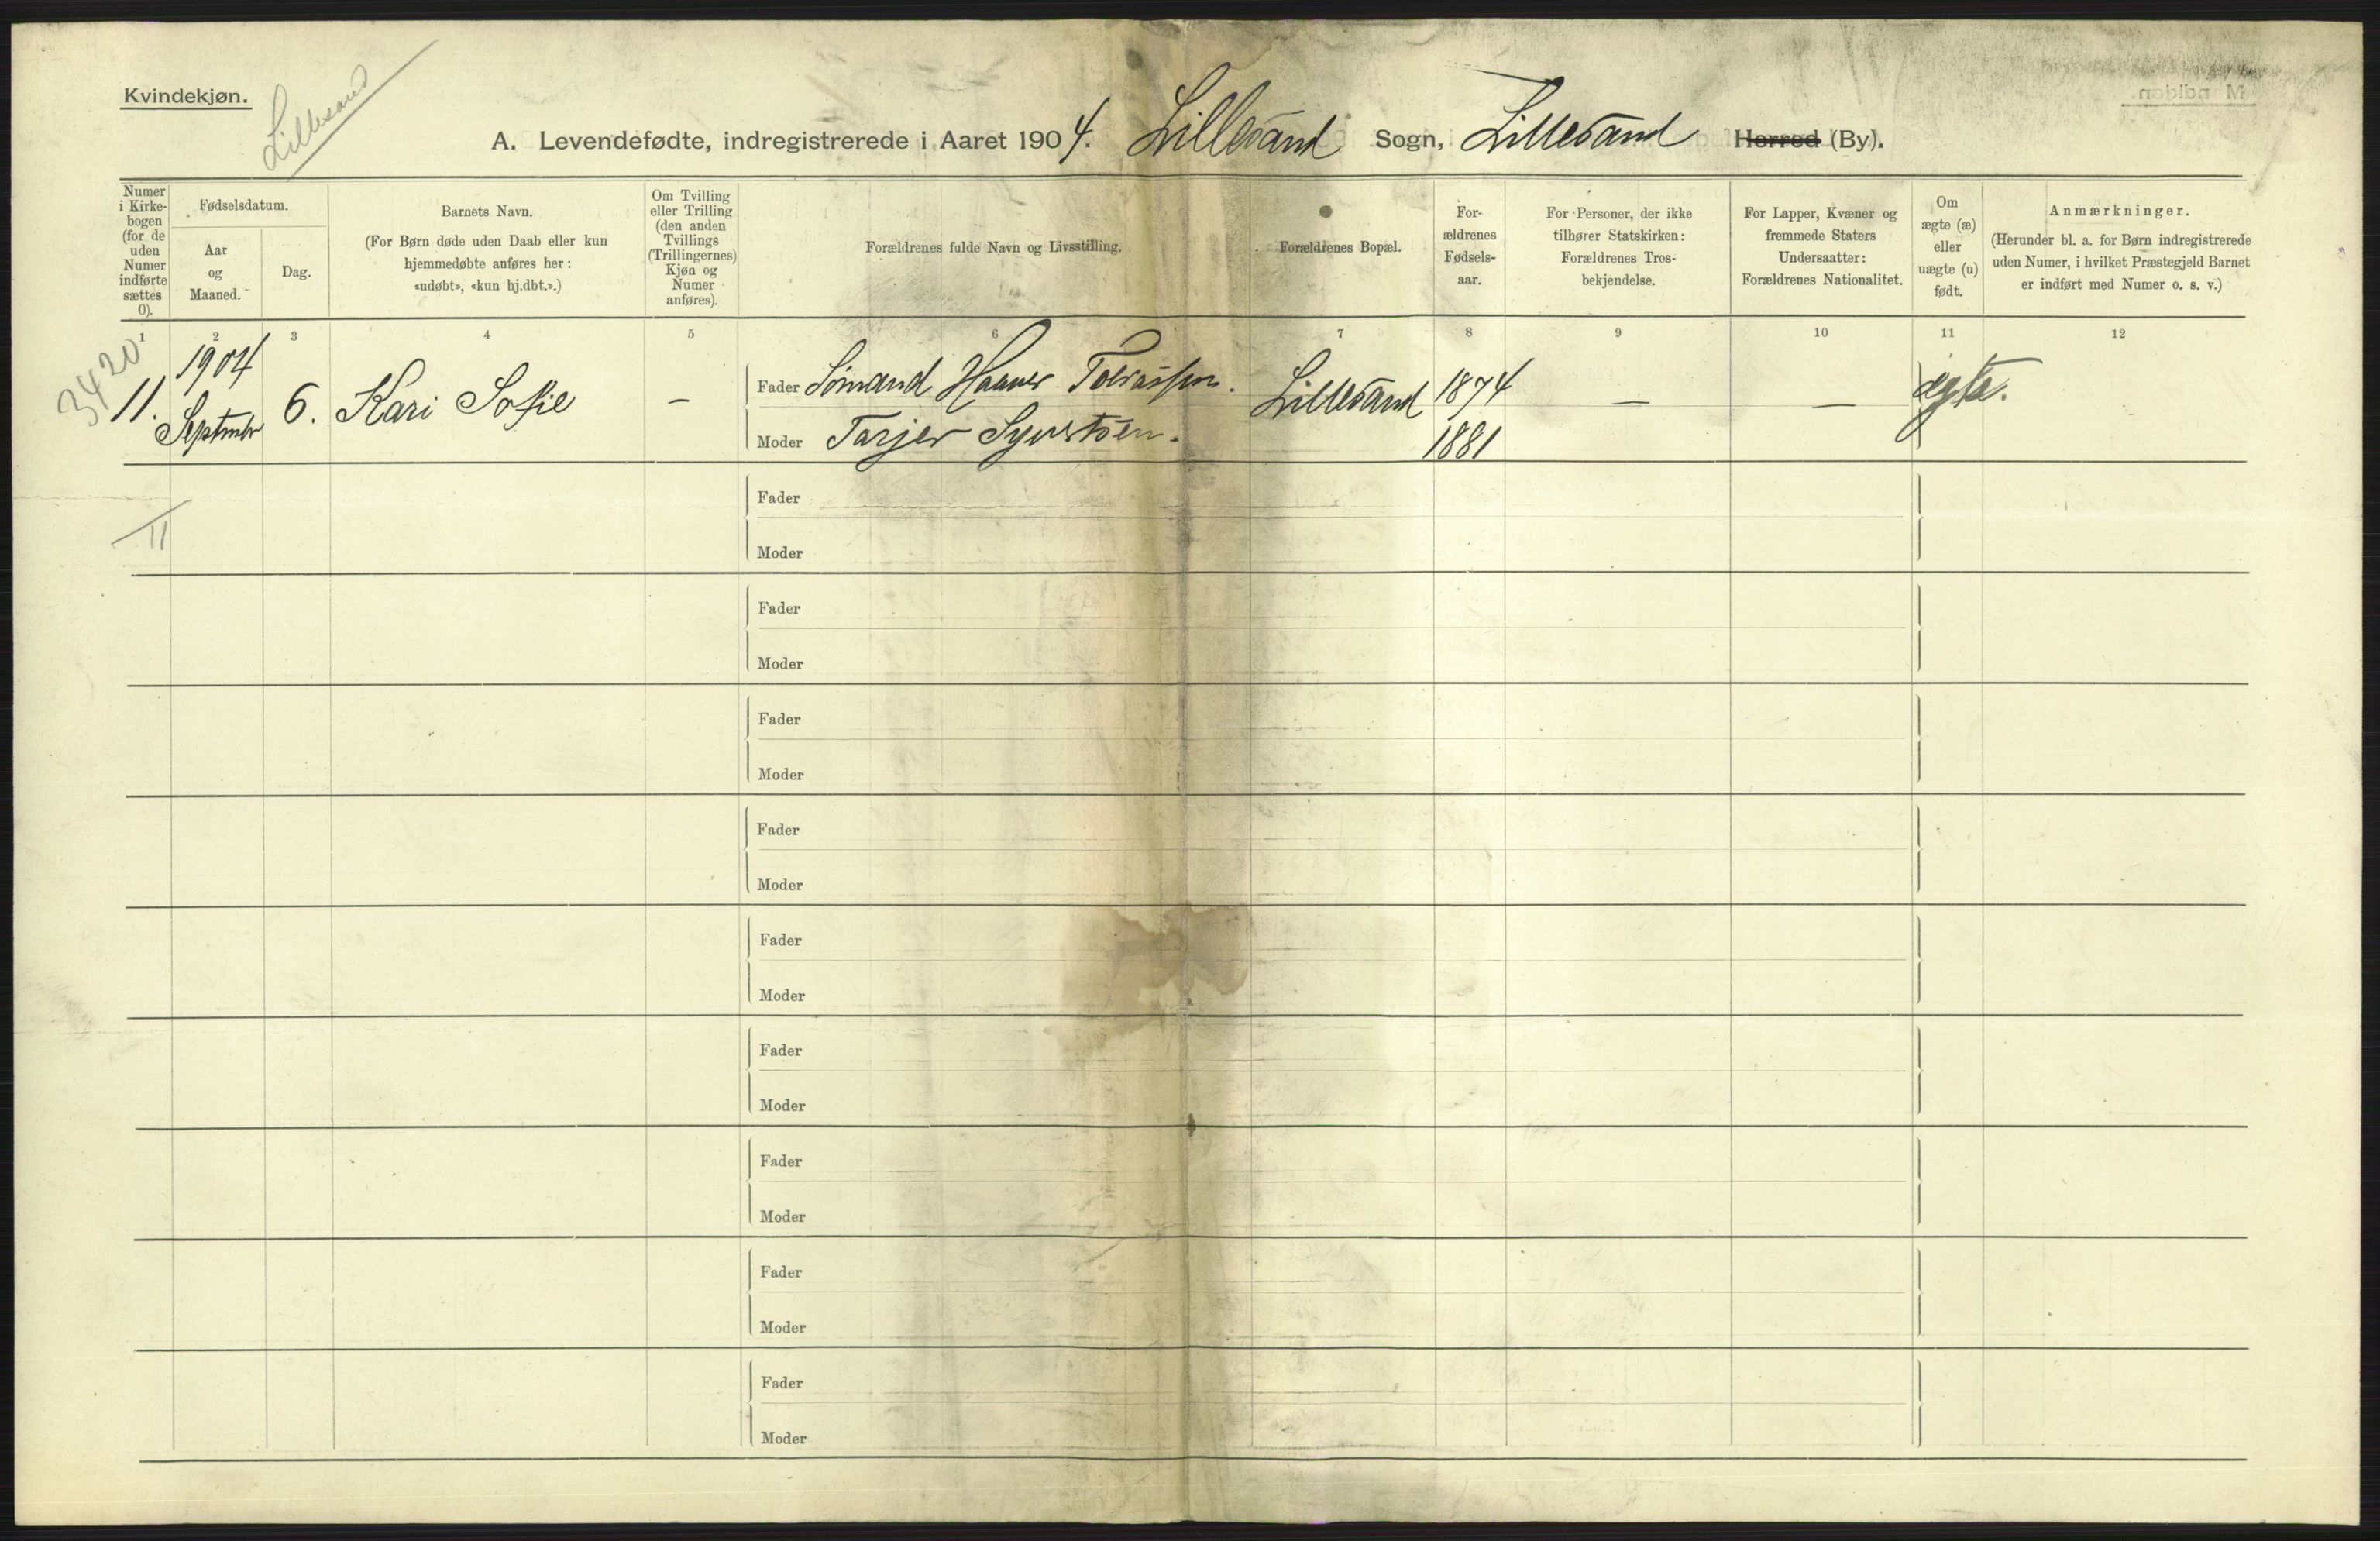 Kvindekjøn.
Lillesand
A. Levendefødte, indregistrerede i Aaret 1904. Lillesand Sogn, Lillesand Herred (By).
Numer i Kirkebogen (for de uden Numer indførte sættes 0).
Fødselsdatum.
Aar og Maaned.
Dag.
Barnets Navn.
(For Børn døde uden Daab eller kun
hjemmedøbte anføres her:
«udøbt», «kun hj.dbt.».)
Om Tvilling
eller Trilling
(den anden
Tvillings
(Trillingernes)
Kjøn og
Numer
anføres).
Forældrenes fulde Navn og Livsstilling.
Forældrenes Bopæl.
For-
ældrenes
Fødsels-
aar.
For Personer, der ikke
tilhører Statskirken:
Forældrenes Tros-
bekjendelse.
For Lapper, Kvæner og
fremmede Staters
Undersaatter:
Forældrenes Nationalitet.
Om
ægte (æ)
eller
uægte (u)
født.
Anmærkninger.
(Herunder bl. a. for Børn indregistrerede
uden Numer, i hvilket Præstegjeld Barnet
er indført med Numer o. s. v.)
1 2 3 4 5 6 7 8 9 10 11 12
3420
11. 1904 September 6. Kari Sofie –
Fader Sømand Lillesand 1874 – – ægte.
Moder 1881
11
Fader
Moder
Fader
Moder
Fader
Moder
Fader
Moder
Fader
Moder
Fader
Moder
Fader
Moder
Fader
Moder
Fader
Moder